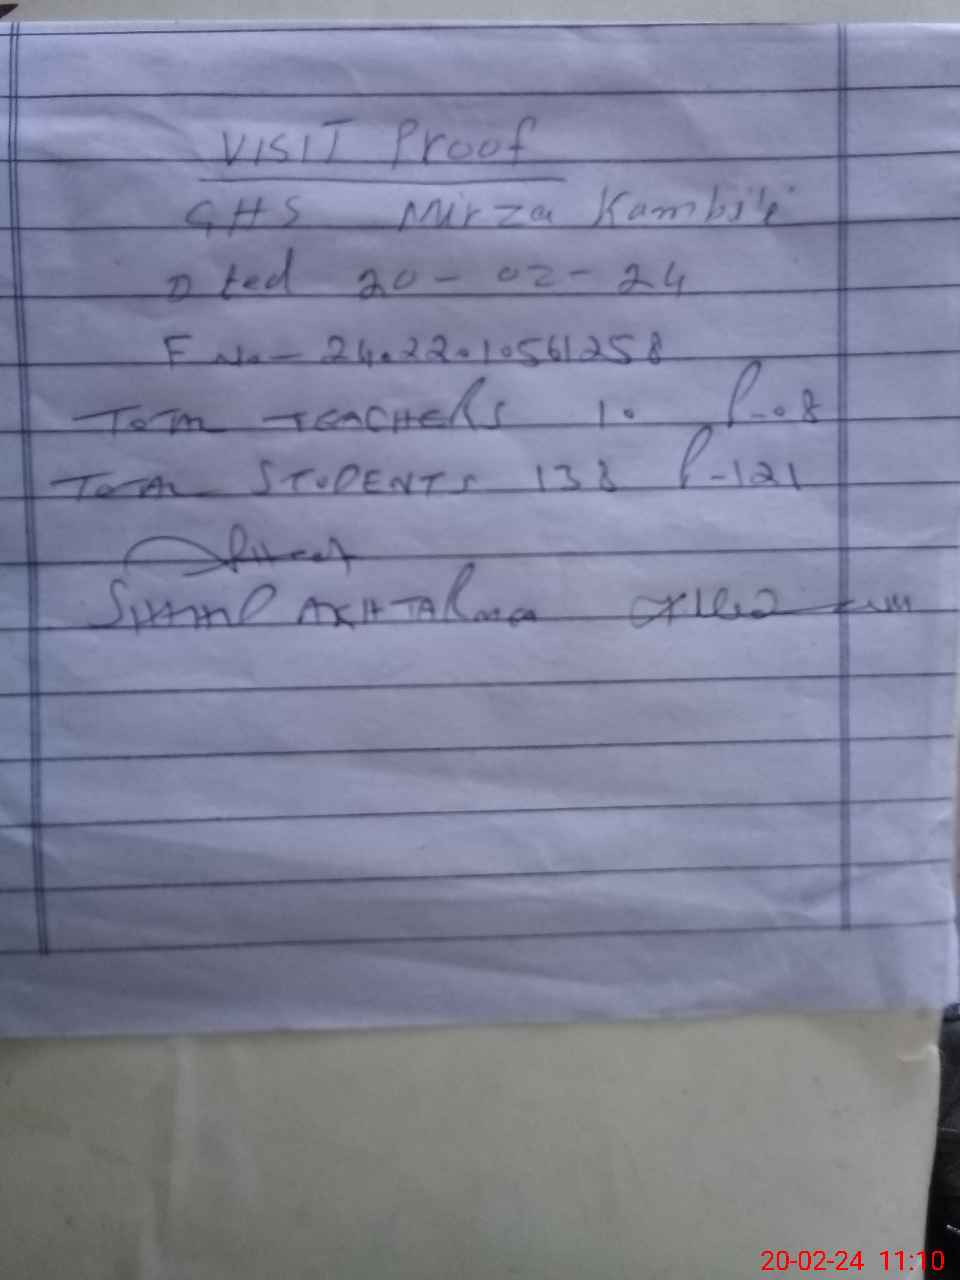 VISIT Proof
GHS Mirza Kambili
Dted 20-02-24
F No- 24.22.10561258
TOTAL TEACHERS 10 P-08
TOTAL STUDENTS 138 P-121
AKHTAR
20-02-24 11:10